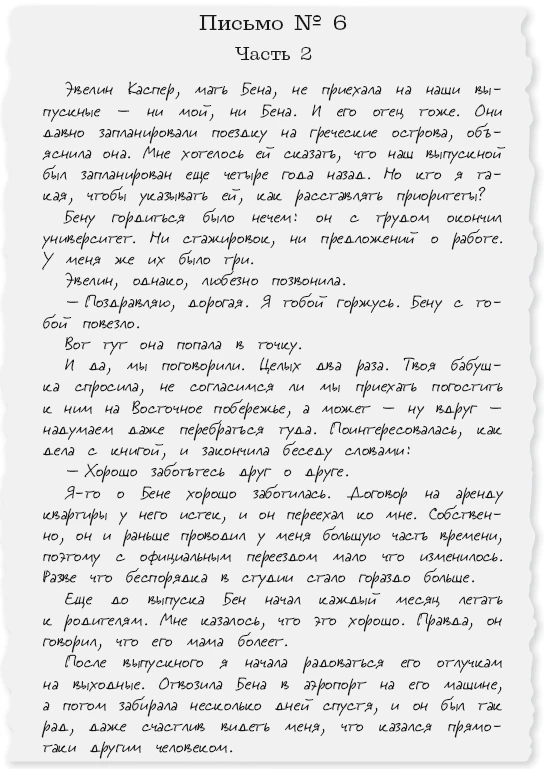 Письмо № 6
Часть 2
Эвелин Каспер, мать Бена, не приехала на наши вы-
пускные — ни мой, ни Бена. И его отец тоже. Они
давно запланировали поездку на греческие острова, объ-
яснила она. Мне хотелось ей сказать, что наш выпускной
был запланирован еще четыре года назад. Но кто я та-
кая, чтобы указывать ей, как расставлять приоритеты?
Бену гордиться было нечем: он с трудом окончил
университет. Ни стажировок, ни предложений о работе.
У меня же их было три.
Эвелин, однако, любезно позвонила.
— Поздравляю, дорогая. Я тобой горжусь. Бену с то-
бой повезло.
Вот тут она попала в точку.
И да, мы поговорили. Целых два раза. Твоя бабуш-
ка спросила, не согласимся ли мы приехать погостить
к ним на Восточное побережье, а может — ну вдруг —
надумаем даже перебраться туда. Поинтересовалась, как
дела с книгой, и закончила беседу словами:
— Хорошо заботьтесь друг о друге.
Я-то о Бене хорошо заботилась. Договор на аренду
квартиры у него истек, и он переехал ко мне. Собствен-
но, он и раньше проводил у меня большую часть времени,
поэтому с официальным переездом мало что изменилось.
Разве что беспорядка в студии стало гораздо больше.
Еще до выпуска Бен начал каждый месяц летать
к родителям. Мне казалось, что это хорошо. Правда, он
говорил, что его мама болеет.
После выпускного я начала радоваться его отлучкам
на выходные. Отвозила Бена в аэропорт на его машине,
а потом забирала несколько дней спустя, и он был так
рад, даже счастлив видеть меня, что казался прямо-
таки другим человеком.